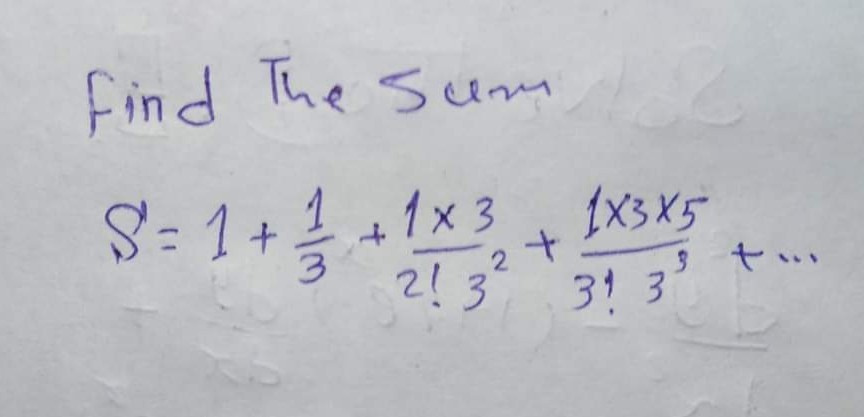 Find The Sum
S = 1 + 1/3 + 1x3/2! 3² + 1x3x5/3! 3³ + ...